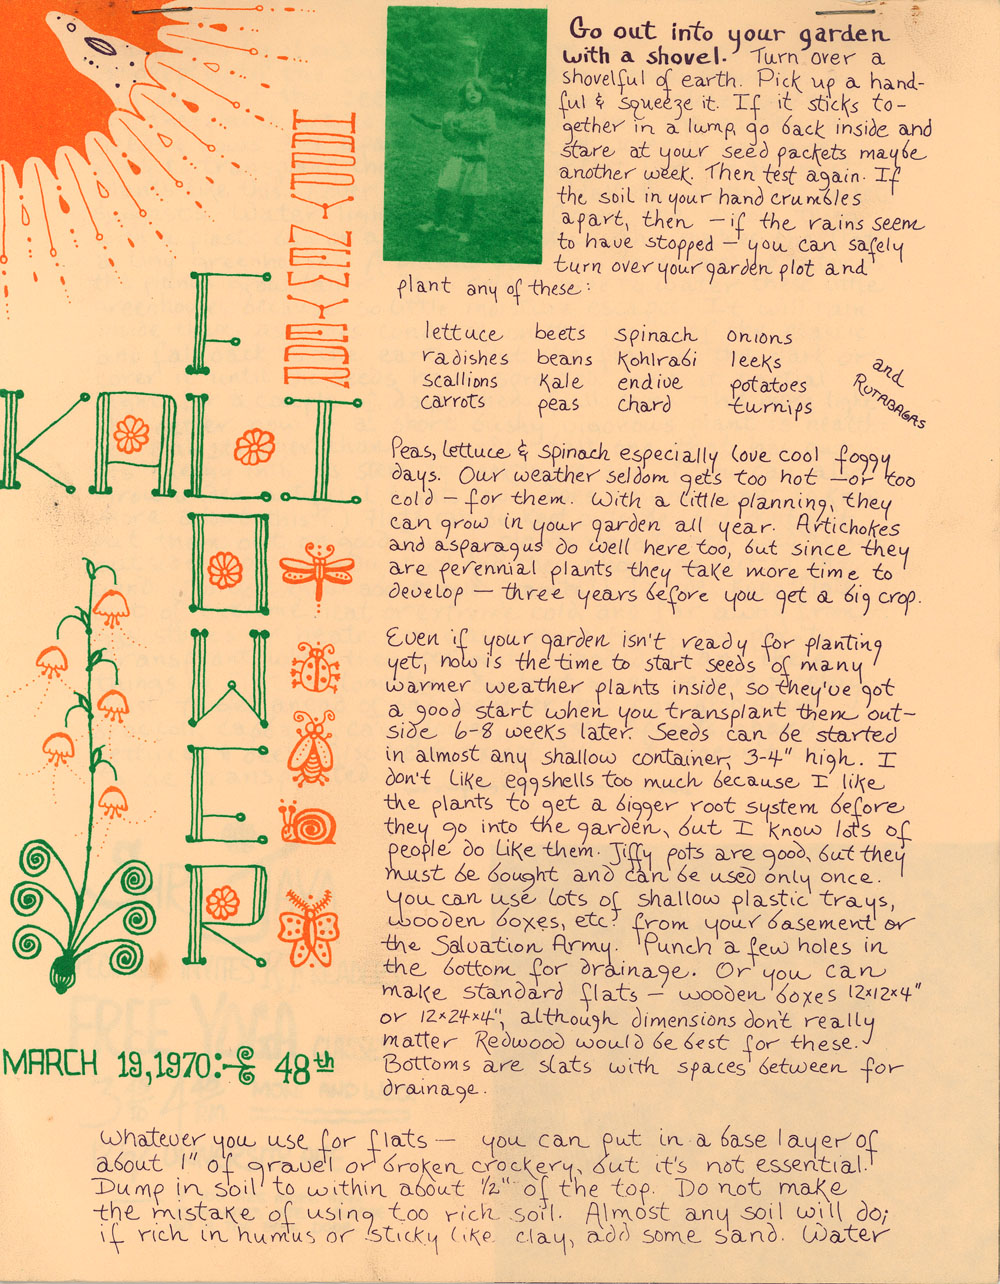 KALIFLOWER
MARCH 19, 1970: 48th
Go out into your garden
with a shovel. Turn over a
shovelful of earth. Pick up a hand-
ful & squeeze it. If it sticks to-
gether in a lump, go back inside and
stare at your seed packets maybe
another week. Then test again. If
the soil in your hand crumbles
apart, then — if the rains seem
to have stopped — you can safely
turn over your garden plot and
plant any of these:
lettuce beets spinach onions
radishes beans kohlrabi leeks
scallions kale endive potatoes
carrots peas chard turnips
and
RUTABAGAS
Peas, lettuce & spinach especially love cool foggy
days. Our weather seldom gets too hot — or too
cold — for them. With a little planning, they
can grow in your garden all year. Artichokes
and asparagus do well here too, but since they
are perennial plants they take more time to
develop — three years before you get a big crop.
Even if your garden isn't ready for planting
yet, now is the time to start seeds of many
warmer weather plants inside, so they've got
a good start when you transplant them out-
side 6-8 weeks later. Seeds can be started
in almost any shallow container, 3-4" high. I
don't like eggshells too much because I like
the plants to get a bigger root system before
they go into the garden, but I know lots of
people do like them. Jiffy pots are good, but they
must be bought and can be used only once.
You can use lots of shallow plastic trays,
wooden boxes, etc. from your basement or
the Salvation Army. Punch a few holes in
the bottom for drainage. Or you can
make standard flats — wooden boxes 12x12x4"
or 12x24x4", although dimensions don't really
matter. Redwood would be best for these.
Bottoms are slats with spaces between for
drainage.
Whatever you use for flats — you can put in a base layer of
about 1" of gravel or broken crockery, but it's not essential.
Dump in soil to within about 1/2" of the top. Do not make
the mistake of using too rich soil. Almost any soil will do;
if rich in humus or sticky like clay, add some sand. Water